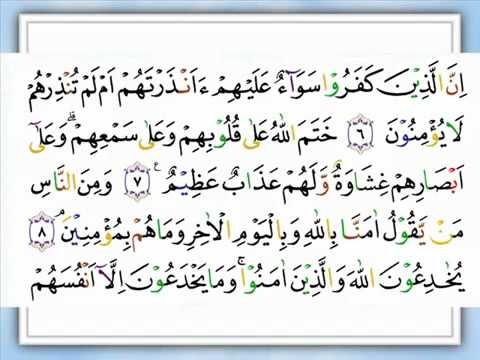 اِنَّ الَّذِيْنَ كَفَرُوْا سَوَاۤءٌ عَلَيْهِمْ ءَاَنْذَرْتَهُمْ اَمْ لَمْ تُنْذِرْهُمْ
لَا يُؤْمِنُوْنَ ٦ خَتَمَ اللّٰهُ عَلٰى قُلُوْبِهِمْ وَعَلٰى سَمْعِهِمْ ۗ وَعَلٰٓى
اَبْصَارِهِمْ غِشَاوَةٌ وَّلَهُمْ عَذَابٌ عَظِيْمٌ ࣖ ٧ وَمِنَ النَّاسِ
مَنْ يَّقُوْلُ اٰمَنَّا بِاللّٰهِ وَبِالْيَوْمِ الْاٰخِرِ وَمَا هُمْ بِمُؤْمِنِيْنَ ۘ ٨
يُخٰدِعُوْنَ اللّٰهَ وَالَّذِيْنَ اٰمَنُوْا ۚ وَمَا يَخْدَعُوْنَ اِلَّآ اَنْفُسَهُمْ